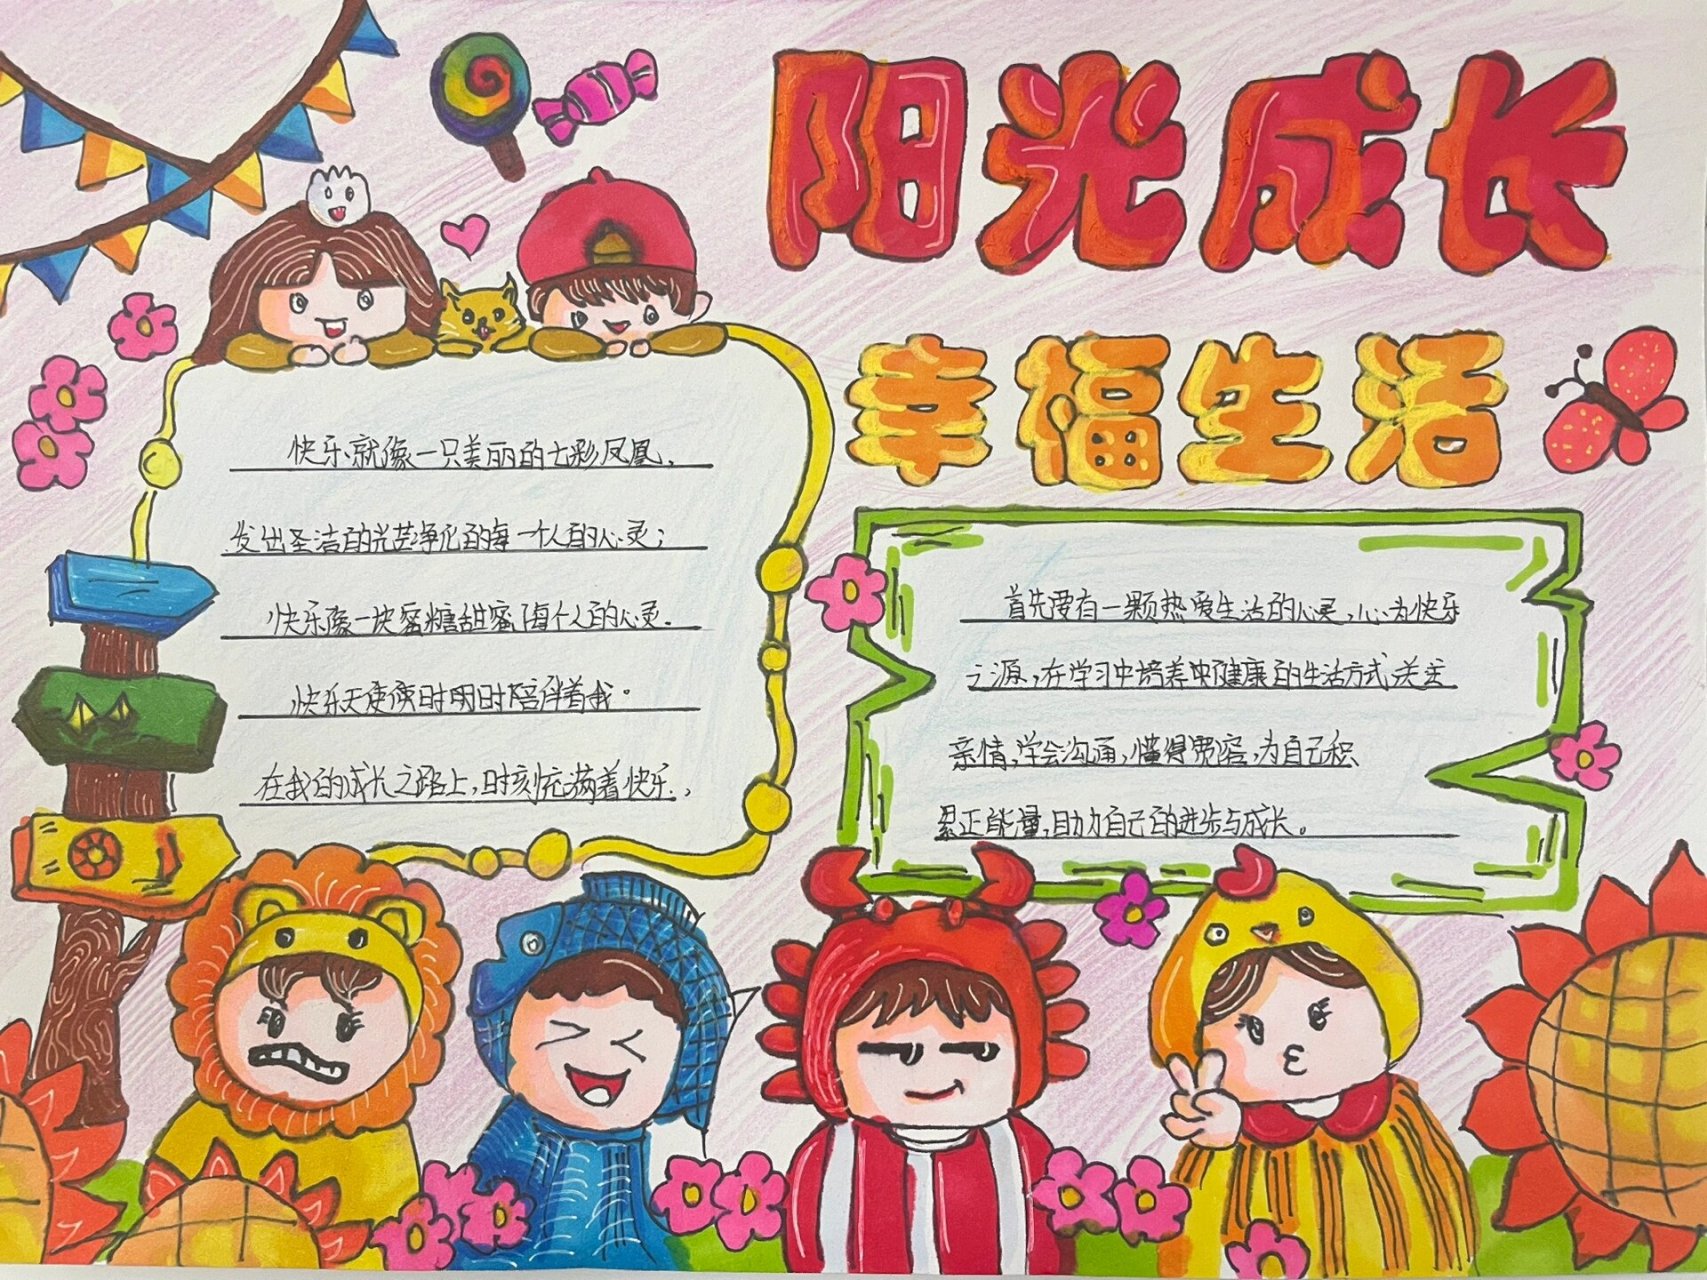 阳光成长
幸福生活
快乐就像一只美丽的七彩凤凰,
发出圣洁的光芒净化的每一个人的心灵;
快乐像一块蜜糖甜蜜每个人的心灵.
快乐天使使时明时陪伴着我.
在我的成长之路上,时刻充满着快乐,
首先要有一颗热爱生活的心灵,心为快乐
之源,在学习中培养中健康的生活方式关主
亲情,学会沟通,懂得宽容,为自己积
累正能量,助力自己的进步与成长。